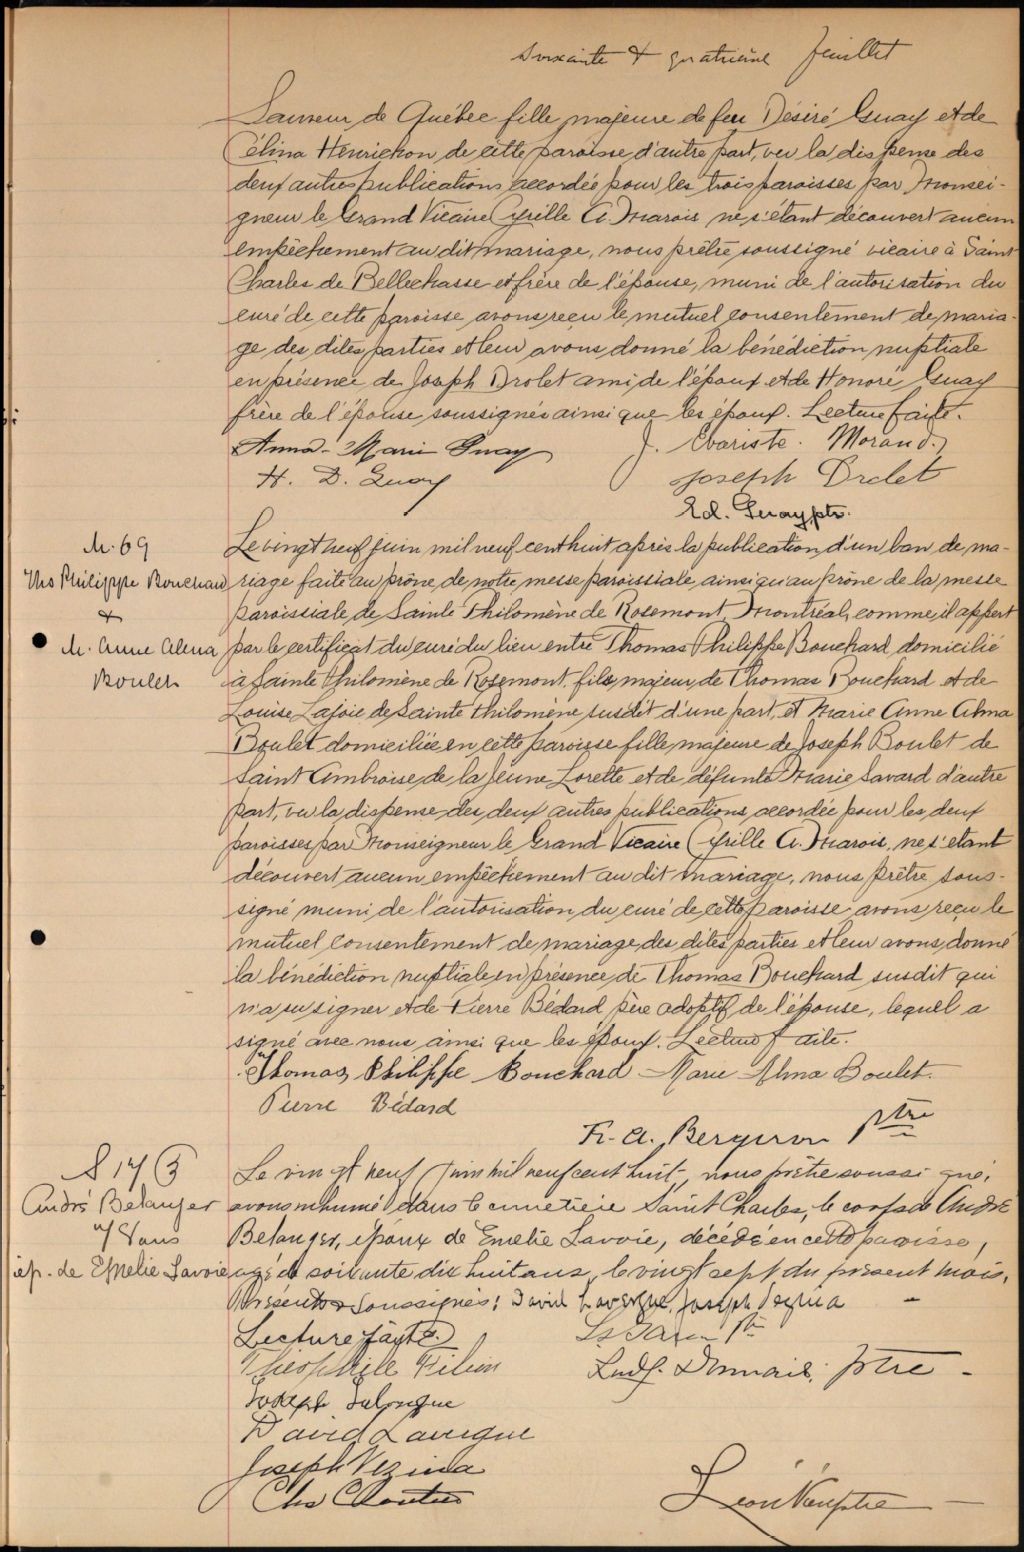 soixante & quatrième feuillet
Sauveur de Québec fille majeure de feu Désiré Guay et de
Célina Henrichon de cette paroisse d'autre part, vu la dispense des
deux autres publications accordée pour les trois paroisses par Monsei-
gneur le Grand Vicaire Cyrille A. Marois ne s'étant découvert aucun
empêchement au dit mariage, nous prêtre soussigné vicaire à Saint
Charles de Bellechasse et frère de l'épouse, muni de l'autorisation du
curé de cette paroisse avons reçu le mutuel consentement de maria-
ge des dites parties et leur avons donné la bénédiction nuptiale
en présence de Joseph Drolet ami de l'époux et de Honoré Guay
frère de l'épouse soussignés ainsi que les époux. Lecture faite.
Anna-Marie Guay J. Evariste Morand
H. D. Guay Joseph Drolet
Ed. Guay ptr.
M. 69
Ths Philippe Bouchard
&
M. Anne Alma
Boulet
Le vingt neuf juin mil neuf cent huit après la publication d'un ban de ma-
riage faite au prône de notre messe paroissiale, ainsi qu'au prône de la messe
paroissiale de Sainte Philomène de Rosemont, Montréal, comme il appert
par le certificat du curé du lieu entre Thomas Philippe Bouchard domicilié
à Sainte Philomène de Rosemont, fils majeur de Thomas Bouchard et de
Louise Lajoie de Sainte Philomène susdit d'une part, et Marie Anne Alma
Boulet domiciliée en cette paroisse fille majeure de Joseph Boulet de
Saint Ambroise de la Jeune Lorette et de défunte Marie Savard d'autre
part, vu la dispense des deux autres publications accordée pour les deux
paroisses par Monseigneur le Grand Vicaire Cyrille A. Marois, ne s'étant
découvert aucun empêchement au dit mariage, nous prêtre sous-
signé muni de l'autorisation du curé de cette paroisse avons reçu le
mutuel consentement de mariage des dites parties et leur avons donné
la bénédiction nuptiale en présence de Thomas Bouchard susdit qui
n'a su signer et de Pierre Bédard père adoptif de l'épouse, lequel a
signé avec nous ainsi que les époux. Lecture faite.
Thomas Philippe Bouchard Marie Alma Boulet.
Pierre Bédard
Fr. A. Bergeron Ptre
S 17 3
André Bélanger
78 ans
ép. de Emélie Savoie
Le vingt neuf juin mil neuf cent huit, nous prêtre soussigné,
avons inhumé dans le cimetière Saint Charles, le corps de André
Belanger, époux de Emelie Savoie, décédé en cette paroisse,
agé de soixante dix huit ans, le vingt sept du present mois,
Présents soussignés: David Lavergne, Joseph Vezina
Lecture faite.
Théophile Filion ptre
Joseph
David Lavergne
Joseph Vezina
Chs Cloutier